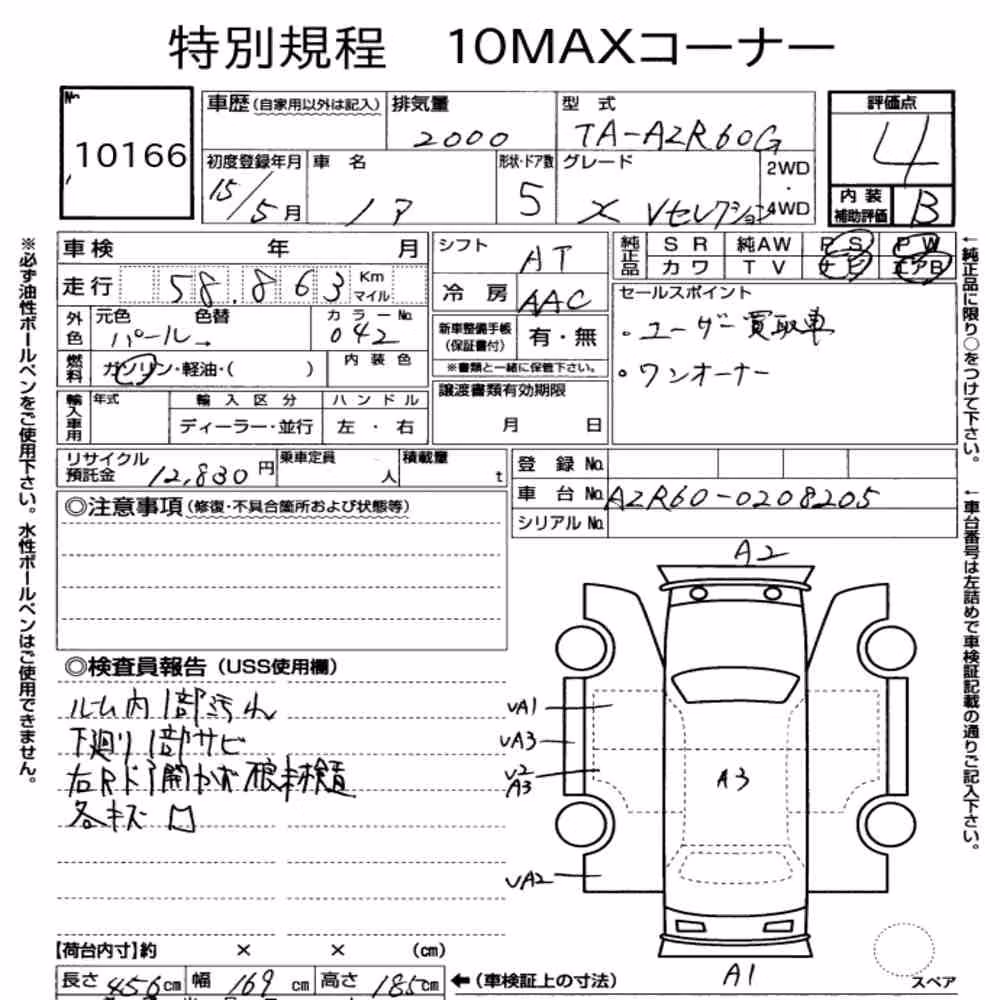 特別規程 10MAXコーナー
№
10166
車歴(自家用以外は記入)
排気量
2000
型式
TA-AZR60G
評価点
4
初度登録年月
15/5月
車名
ノア
形状・ドア数
5
グレード
X Vセレクション
2WD
・
4WD
内装
補助評価
B
車検 年 月
走行 58,863 Km マイル
外色
元色 色替
パール→
カラーNo.
042
燃料
ガソリン・軽油・( )
内装色
輸入車用
年式
輸入区分
ディーラー・並行
ハンドル
左・右
シフト AT
冷房 AAC
新車整備手帳
(保証書付)
有・無
※書類と一緒に保管下さい。
譲渡書類有効期限
月 日
純正品
SR 純AW PS PW
カワ TV ナビ エアB
セールスポイント
・ユーザー買取車
・ワンオーナー
リサイクル預託金 12,830円
乗車定員 人
積載量 t
登録No.
車台No. AZR60-0208205
シリアルNo.
◎注意事項(修復・不具合箇所および状態等)
◎検査員報告(USS使用欄)
ルーム内1部汚れ
下廻り1部サビ
右Rドア開かず
各キズ凹
A2
UA1
UA3
U2
A3
UA2
A3
A1
【荷台内寸】約 × × (cm)
長さ 456cm 幅 169cm 高さ 185cm
←(車検証上の寸法)
スペア
※必ず油性ボールペンをご使用下さい。水性ボールペンはご使用できません。
←純正品に限り○をつけて下さい。
←車台番号は左詰めで車検証記載の通りご記入下さい。